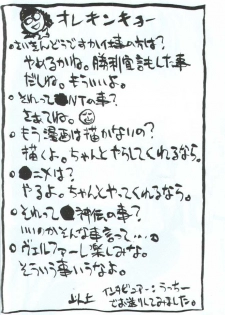 オレキンキョー
○さいきんどうですか仕事の方は?
やめるかね。勝利宣言もした事
だしね。もういいよ。
○それって●NTの事?
さぁてね。
○もう漫画は描かないの?
描くよ。ちゃんとやらしてくれるなら。
○●ニメは?
やるよ。ちゃんとやってくれるなら。
○それって●神伝の事?
いいのかそんな事言って…。
○ヴェルファーレ楽しみな。
そういう事いうなよ。
以上 インタビュアー:うっちー
でお送りしてみました。